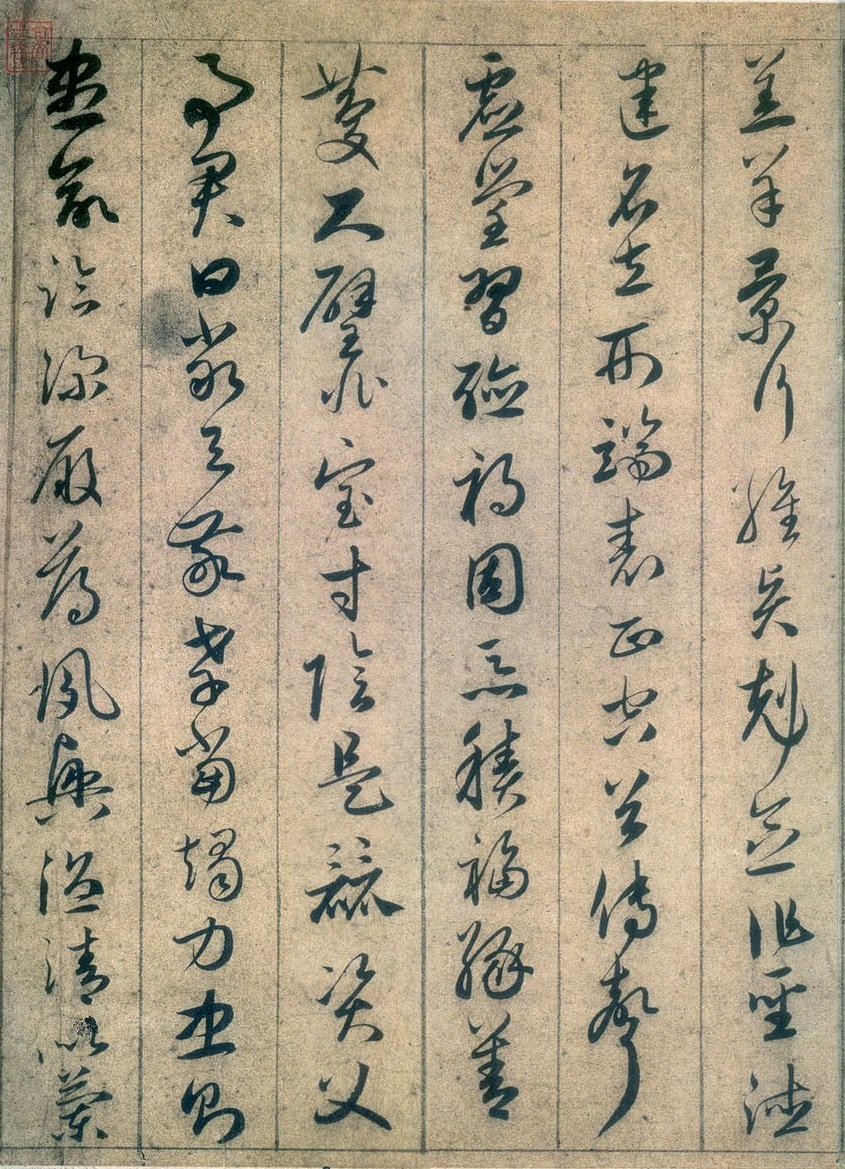 羔羊景行維賢剋念作聖德
建名立形端表正空谷傳聲
虛堂習聽禍因惡積福緣善
慶尺璧非寶寸陰是競資父
事君曰嚴與敬孝當竭力忠則
盡命臨深履薄夙興溫清似蘭